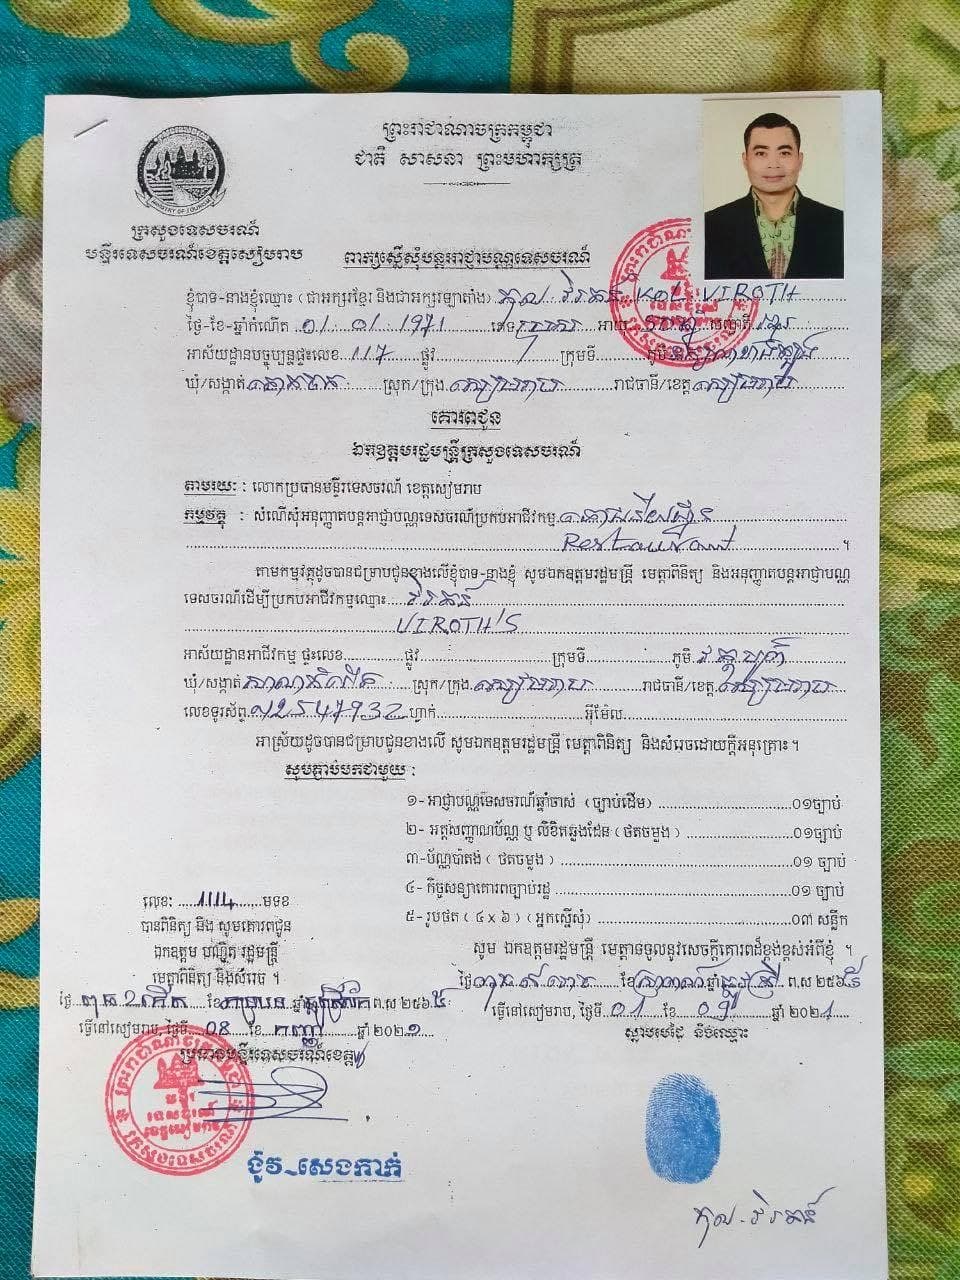 ព្រះរាជាណាចក្រកម្ពុជា
ជាតិ សាសនា ព្រះមហាក្សត្រ
MINISTRY OF TOURISM
ក្រសួងទេសចរណ៍
មន្ទីរទេសចរណ៍ខេត្តសៀមរាប
ពាក្យស្នើសុំបន្តអាជ្ញាបណ្ណទេសចរណ៍
ខ្ញុំបាទ-នាងខ្ញុំឈ្មោះ (ជាអក្សរខ្មែរ និងជាអក្សរឡាតាំង) កុល វិរៈធន៍ KOL VIROTH
ថ្ងៃ-ខែ-ឆ្នាំកំណើត 01/01/1971 ភេទ ប្រុស អាយុ សញ្ជាតិ ខ្មែរ
អាស័យដ្ឋានបច្ចុប្បន្នផ្ទះលេខ 117 ផ្លូវ ក្រុមទី ភូមិ
ឃុំ/សង្កាត់ គោកចក ស្រុក/ក្រុង សៀមរាប រាជធានី/ខេត្ត សៀមរាប
គោរពជូន
ឯកឧត្តមរដ្ឋមន្ត្រីក្រសួងទេសចរណ៍
តាមរយៈ : លោកប្រធានមន្ទីរទេសចរណ៍ ខេត្តសៀមរាប
កម្មវត្ថុ : សំណើសុំអនុញ្ញាតបន្តអាជ្ញាបណ្ណទេសចរណ៍ប្រកបអាជីវកម្ម ភោជនីយដ្ឋាន
Restaurant ។
តាមកម្មវត្ថុដូចបានជម្រាបជូនខាងលើខ្ញុំបាទ-នាងខ្ញុំ សូមឯកឧត្តមរដ្ឋមន្ត្រី មេត្តាពិនិត្យ និងអនុញ្ញាតបន្តអាជ្ញាបណ្ណ
ទេសចរណ៍ដើម្បីប្រកបអាជីវកម្មឈ្មោះ
VIROTH'S
អាស័យដ្ឋានអាជីវកម្ម ផ្ទះលេខ ផ្លូវ ក្រុមទី ភូមិ វត្តបូព៌
ឃុំ/សង្កាត់ សាលាកំរើក ស្រុក/ក្រុង សៀមរាប រាជធានី/ខេត្ត សៀមរាប
លេខទូរស័ព្ទ 012547932 ហ្វាក់ អ៊ីម៉ែល
អាស្រ័យដូចបានជម្រាបជូនខាងលើ សូមឯកឧត្តមរដ្ឋមន្ត្រី មេត្តាពិនិត្យ និងសំរេចដោយក្តីអនុគ្រោះ។
សូមភ្ជាប់មកជាមួយ :
១-អាជ្ញាបណ្ណទេសចរណ៍ឆ្នាំចាស់ (ច្បាប់ដើម) ០១ច្បាប់
២- អត្តសញ្ញាណប័ណ្ណ ឬ លិខិតឆ្លងដែន (ថតចម្លង) ០១ច្បាប់
៣-ប័ណ្ណប៉ាតង់ ( ថតចម្លង ) ០១ ច្បាប់
៤- កិច្ចសន្យាគោរពច្បាប់រដ្ឋ ០១ ច្បាប់
៥- រូបថត ( ៤ x ៦ ) (អ្នកស្នើសុំ) ០៣ សន្លឹក
លេខៈ 1114 មទខ
បានពិនិត្យ និង សូមគោរពជូន
ឯកឧត្តម បណ្ឌិត រដ្ឋមន្ត្រី
មេត្តាពិនិត្យ និងសំរេច ។
ថ្ងៃ ពុធ ២កើត ខែ ភទ្របទ ឆ្នាំ ព.ស ២៥៦៥
ធ្វើនៅសៀមរាប, ថ្ងៃទី 08 ខែ កញ្ញា ឆ្នាំ ២០២១
ប្រធានមន្ទីរទេសចរណ៍ខេត្ត
សូម ឯកឧត្តមរដ្ឋមន្ត្រី មេត្តាទទួលនូវសេចក្តីគោរពដ៏ខ្ពង់ខ្ពស់អំពីខ្ញុំ ។
ថ្ងៃ ខែ ឆ្នាំ ព.ស ២៥៦៥
ធ្វើនៅសៀមរាប, ថ្ងៃទី 01 ខែ 09 ឆ្នាំ ២០២1
ស្នាមមេដៃ និងឈ្មោះ
មន្ទីរ
ទេសចរណ៍
ខេត្តសៀមរាប
ក្រសួងទេសចរណ៍
ង៉ូវ សេងកាក់